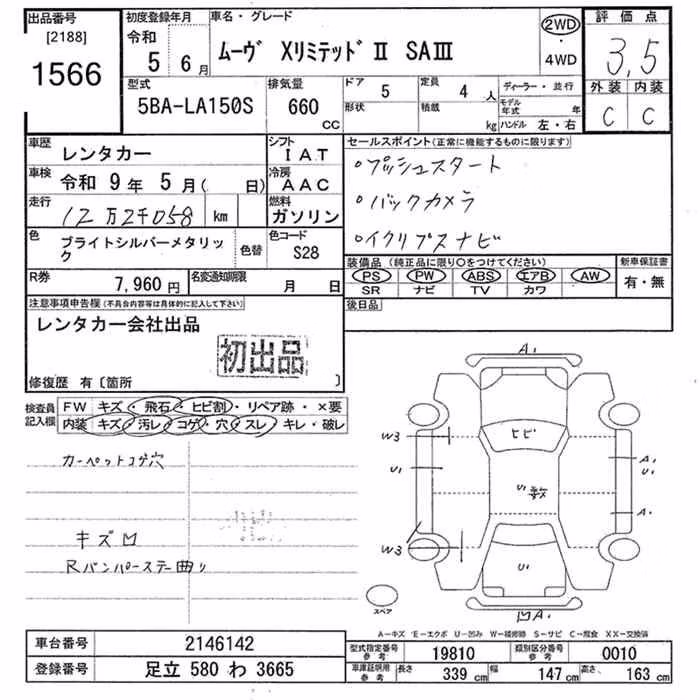 出品番号
[2188]
1566
初度登録年月
令和
5年 6月
車名・グレード
ﾑｰｳﾞ XﾘﾐﾃｯﾄﾞⅡ SAⅢ
2WD
・
4WD
評価点
3.5
外装 内装
C C
型式
5BA-LA150S
排気量
660
cc
ドア
5
形状
定員
4 人
積載
kg
ディーラー・並行
モデル年式 年
ハンドル 左・右
車歴
レンタカー
シフト
IAT
車検
令和 9年 5月( 日)
冷房
AAC
走行
12万2千058 km
燃料
ガソリン
色
ブライトシルバーメタリック
色替
色コード
S28
R券
7,960円
名変通知期限
月 日
セールスポイント(正常に機能するものに限ります)
○プッシュスタート
○バックカメラ
○イクリプスナビ
装備品(純正品に限り○をつけてください)
PS PW ABS エアB AW
SR ナビ TV カワ
新車保証書
有・無
後日品
注意事項申告欄(不具合内容等は具体的に記入して下さい)
レンタカー会社出品
初出品
修復歴 有〔箇所 〕
検査員記入欄
FW キズ・飛石・ヒビ割・リペア跡・×要
内装 キズ・汚レ・コゲ・穴・スレ・キレ・破レ
カーペットコゲ穴
キズ凹
Rバンパーステー曲り
A1
W3
ヒビ
U1
A1
U1
U1 数
A1
W3
U1
凹A1
スペア
A-キズ E-エクボ U-凹み W-補修跡 S-サビ C-腐食 XX-交換済
車台番号
2146142
登録番号
足立 580 わ 3665
型式指定番号
参考
19810
類別区分番号
参考
0010
車庫証明用
参考
長さ 339 cm 幅 147 cm 高さ 163 cm